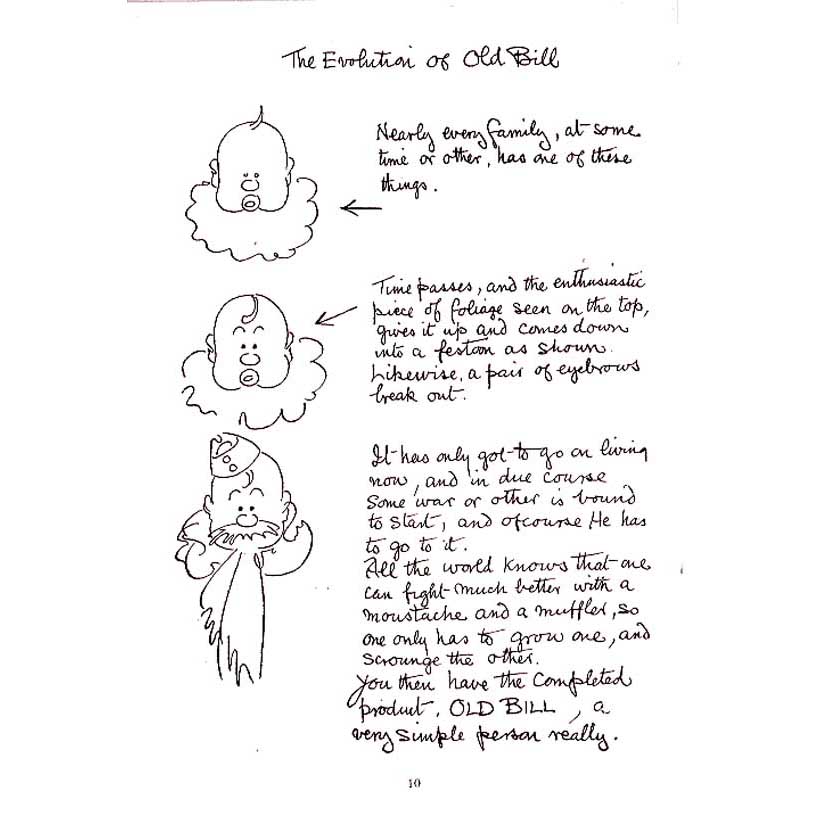 The Evolution of Old Bill
Nearly every family, at some
time or other, has one of these
things.
Time passes, and the enthusiastic
piece of foliage seen on the top,
gives it up and comes down
into a festoon as shown.
Likewise, a pair of eyebrows
break out.
It has only got to go on living
now, and in due course
Some war or other is bound
to start, and ofcourse He has
to go to it.
All the world knows that one
can fight much better with a
moustache and a muffler, so
one only has to grow one, and
scrounge the other.
You then have the completed
product, OLD BILL, a
very simple person really.
10